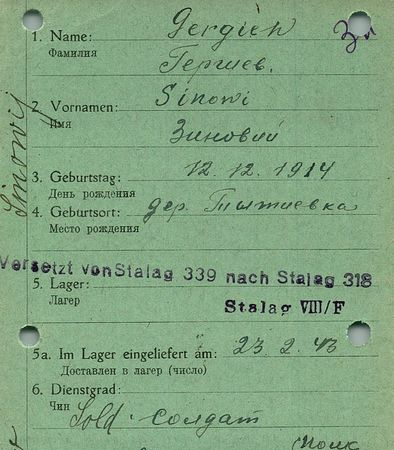 1. Name: Gergieh
Фамилия
Гергиев.
2. Vornamen: Sinowi
Имя
Зиновий
Sinowij
3. Geburtstag: 12. 12. 1914
День рождения
4. Geburtsort: дер.
Место рождения
Versetzt von Stalag 339 nach Stalag 318
5. Lager: Stalag VIII/F
Лагер
5a. Im Lager eingeliefert am: 23. 2. 43
Доставлен в лагер (число)
6. Dienstgrad:
Чин Sold. солдат